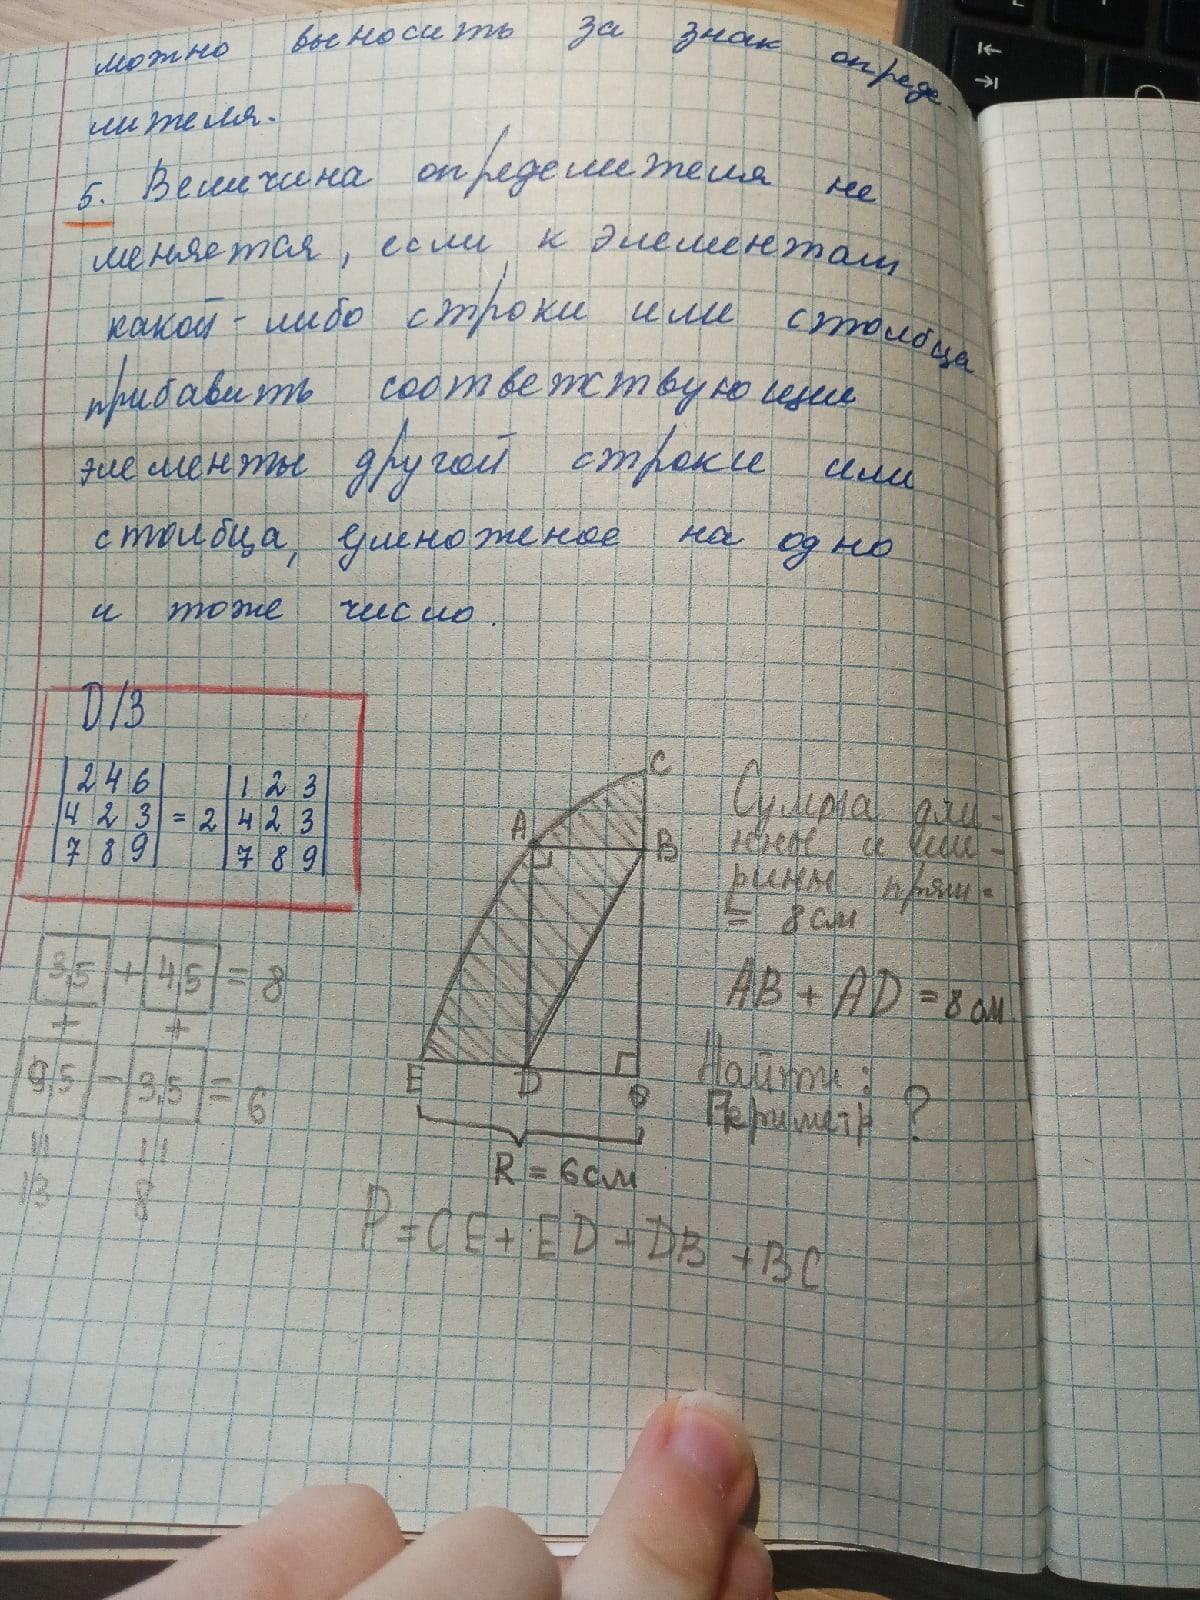 можно выносить за знак опреде-
лителя.
5. Величина определителя не
меняется, если к элементам
какой-либо строки или столбца
прибавить соответствующие
элементы другой строки или
столбца, умноженое на одно
и тоже число.
D/З
|2 4 6| |1 2 3|
|4 2 3| = 2 |4 2 3|
|7 8 9| |7 8 9|
3,5 + 4,5 = 8
+ +
9,5 - 3,5 = 6
11 11
13 8
C
A
B
E D O
R = 6см
Сумма дли-
нны и ши-
рины прям-
= 8см
AB + AD = 8см
Найти:
Периметр ?
P = CE + ED + DB + BC